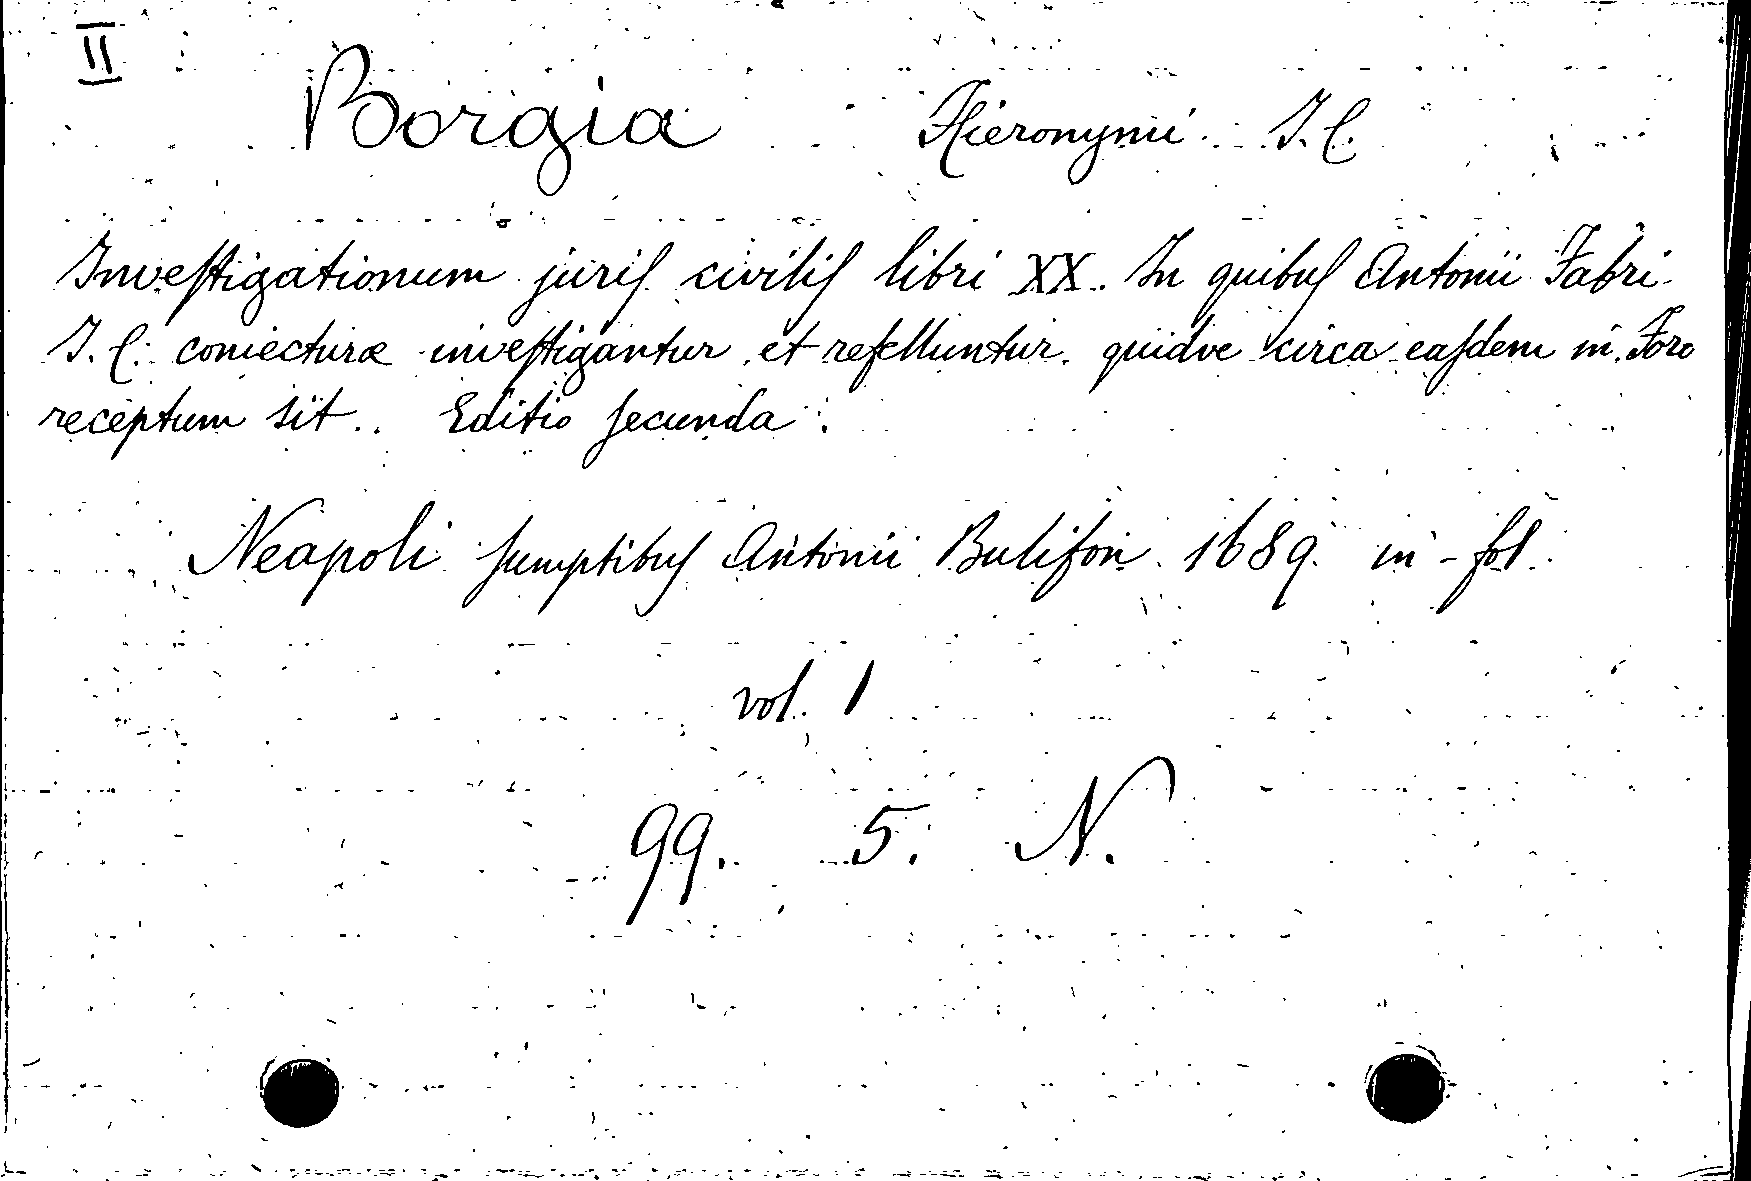 II
Borgia Hieronymi J. C.
Inveſtigationum juriſ civiliſ libri XX. In quibuſ Antonii Fabri
J. C. coniecturæ inveſtigantur et refelluntur. quidve circa eaſdem in Foro
receptum sit. Editio ſecunda.
Neapoli ſumptibuſ Antonii Bulifon. 1689. in-fol.
vol. 1
99. 5. N.